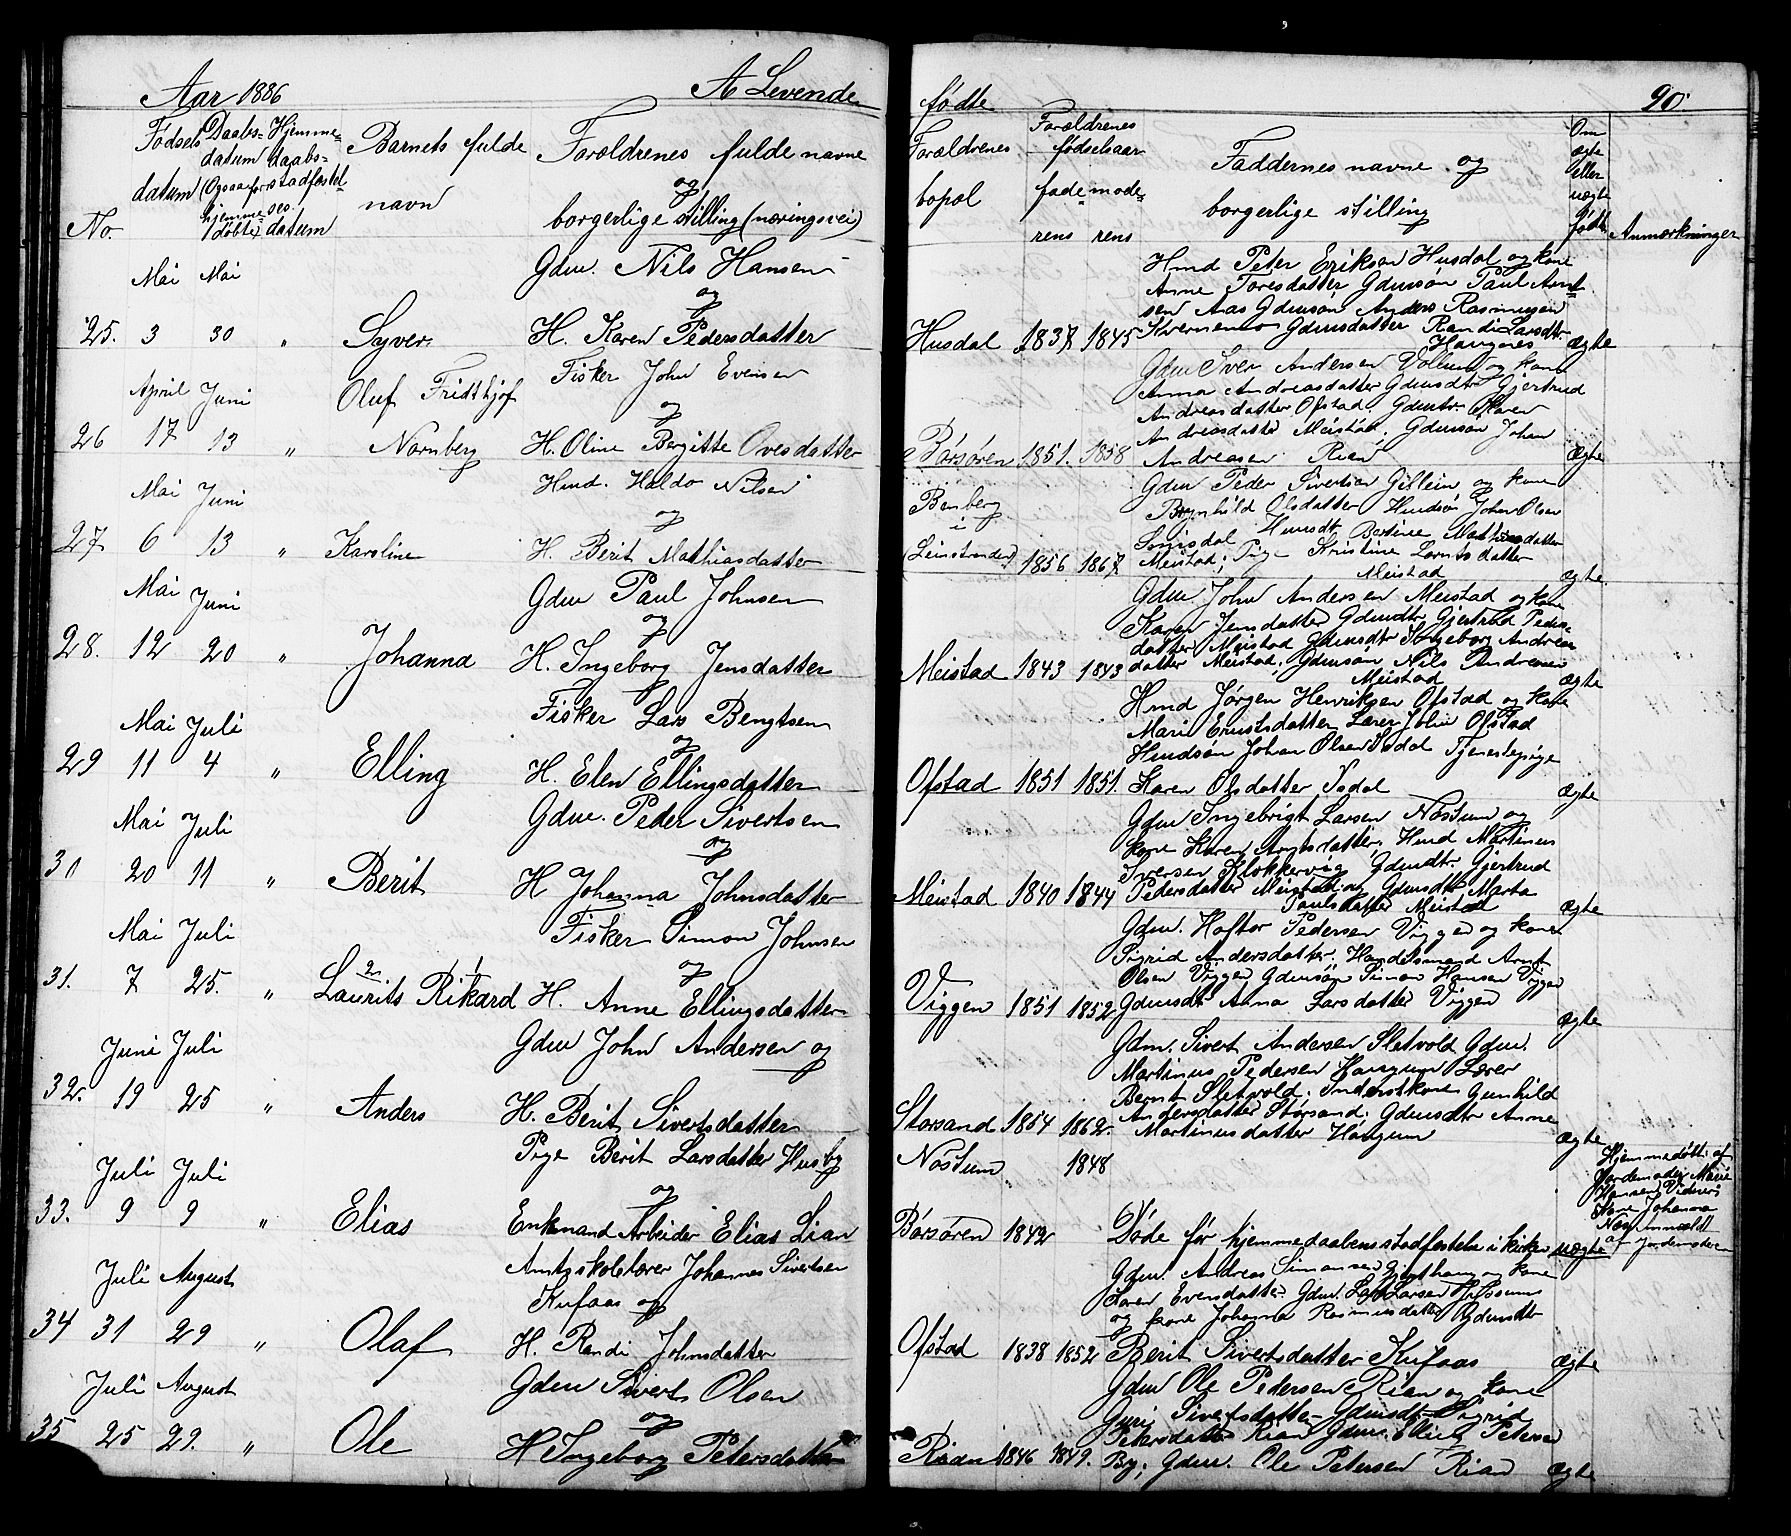 Aar 1886
A Levende
No.
Fødsels datum
Daabs- datum (Ogsaa for hjemme- døbte)
Hjemme- daabs- stadfæstel- ses- datum
Barnets fulde navn
Forældrenes fulde navne og borgerlige stilling (næringsvei)
25. Mai 3 Mai 30 " Syver
Gdm. Nils Hansen
og
H. Karen Pedersdatter
26 April 17 Juni 13 " Oluf Fridthjof Nornberg
Fisker John Evensen
og
H. Oline Bergitte Ovesdatter
27 Mai 6 Juni 13 " Karoline
Hmd. Haldo Nilsen
og
H. Berit Mathiasdatter
28. Mai 12 Juni 20 " Johanna
Gdm Paul Johnsen
og
H. Ingeborg Jensdatter
29 Mai 11 Juli 4 " Elling
Fisker Lars Bengtsen
og
H. Elen Ellingsdatter
30 Mai 20 Juli 11 " Berit
Gdm. Peder Sivertsen
og
H Johanna Johnsdatter
31. Mai 7 Juli 25. " Laurits 2 Rikard 1
Fisker Simon Johnsen
og
H. Anne Ellingsdatter
32. Juni 19 Juli 25 " Anders
Gdm John Andersen og
H. Berit Sivertsdatter
33. Juli 9 Juli 9 " Elias
Pige Berit Larsdatter Husby
og
Enkemand Arbeider Elias Lian
34 Juli 31 August 29 " Olaf
Amtsskolelærer Johannes Sivertsen
Kufaas og
H. Randi Johnsdatter
35 Juli 25 August 29. " Ole
Gdm Sivert Olsen
og
H Ingeborg Petersdatter
fødte
90
Forældrenes bopæl
Forældrenes fødselsaar
fade- rens
mode- rens
Faddernes navne og borgerlige stilling
Om ægte eller uægte født
Anmærkninger
Hmd Peter Erikson Husdal og kone
Anne Toresdatter Gdmsøn Paul Arnt-
sen Aas Gdmsøn Anders Rasmussen
Husdal 1837 1845 Kvernmo Gdmsdatter Randi Larsdtr.
Haugnes ægte
Gdm Iver Andersen Vollum og kone
Anna Andreasdatter Gdmsdtr Gjertrud
Andreasdatter Ofstad, Gdmdtr. Karen
Andreasdatter Meistad, Gdmsøn Johan
Børsøren 1851. 1858 Andreasen Rian ægte
Gdm Peder Sivertsen Gillein og kone
Benberg
i
Brynhild Olsdatter Hmdsøn John Olsen
Hmsdt. Bertine Mathiasdatter
(Leinstranden) 1856 1867 Meistad; Pige Kristine Lorntsdatter
Meistad ægte
Gdm. John Andersen Meistad og kone
Karen Jensdatter Gdmdtr. Gjertrud Peders-
datter Meistad Gdmsdtr Ingeborg Andreas
Meistad 1843 1843 datter Meistad, Gdmsøn Nils Andresen
Meistad ægte
Hmd Jørgen Henriksen Ofstad og kone
Mari Ernstsdatter Lærer John Ofstad
Hmdsøn Johan Olsen Sødal Tjenestepige
Ofstad 1851 1851. Karen Olsdatter Sødal ægte
Gdm Ingebrigt Larsen Nostum og
kone Karen Arntsdatter, Hmd Martinus
Iversen Klokkervig Gdmdtr. Gjertrud
Meistad 1840 1844 Pedersdatter Meistad og Gdmsdtr Marta
Paulsdatter Meistad ægte
Gdm. Hoftor Pedersen Viggen og kone
Sigrid Andersdatter, Handelsmand Arnt
Olsen Viggen Gdmsøn Simon Hansen Viggen
Viggen 1851 1852 Gdmsdt Anna Larsdatter Viggen ægte
Gdm. Sivert Andersen Sletvold Gdm.
Martinus Pedersen Haugum Lærer
Bernt Sletvold. Inderstkone Gunhild
Storsand 1854 1862. Andersdatter Storsand. Gdmsdtr Anne
Martinusdatter Haugum ægte
Nostum 1848
Børsøren 1842 Døde før hjemmedaabens stadfæstelse i kirken uægte
Hjemmedøbt af
Jordemoder Marie
Hansen Vidnesi
kone Johanna
Nostum anmeldt
af Jordemoderen
Gdm. Andreas Simonsen og kone
Karen Evensdatter Gdm. Lars Larsen
og kone Johanna Rasmusdatter Gdmsdtr
Ofstad 1838 1852 Berit Sivertsdatter Kufaas ægte
Gdm Ole Pedersen Rian og kone
Guri Sivertsdatter Gdmsdt Sigrid
Petersdatter Rian Gdm. Elling Petersen
Rian 1846 1849. By; Gdm. Ole Petersen Rian ægte